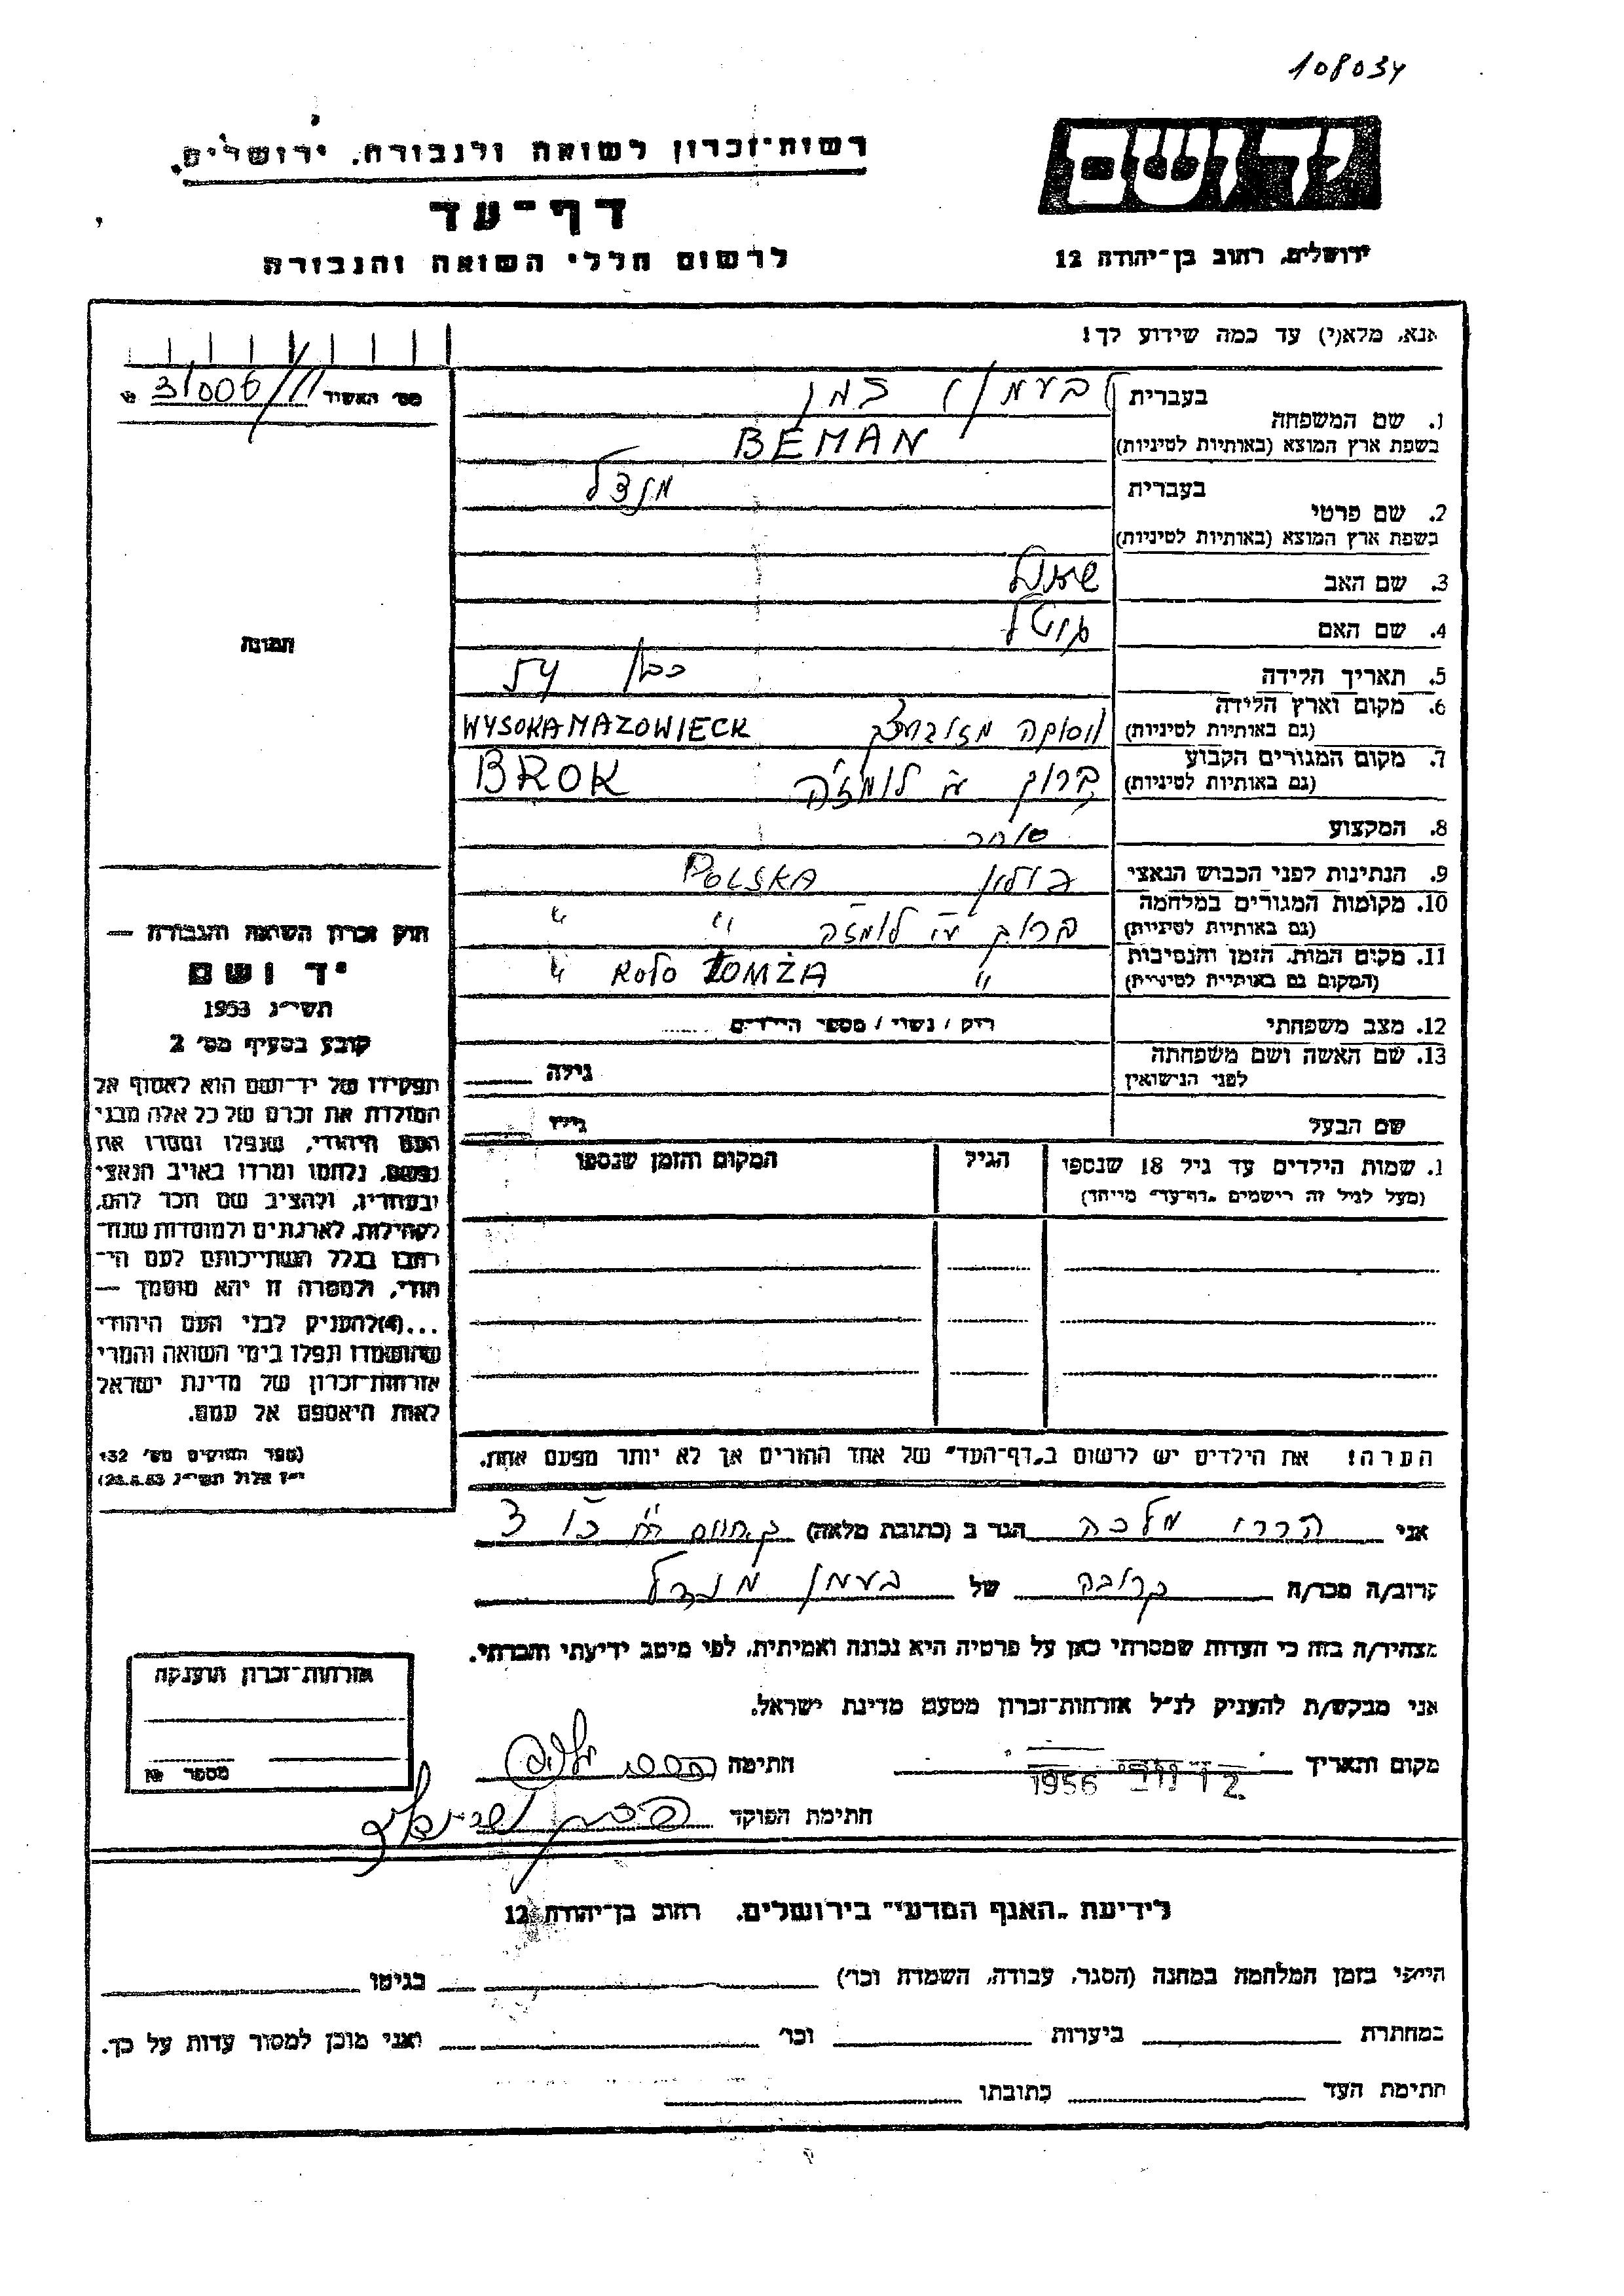 108034
רשות־זכרון לשואה ולגבורה, ירושלים.
יד ושם
דף־עד
ירושלים, רחוב בן־יהודה 12
לרשום חללי השואה והגבורה
אנא, מלא(י) עד כמה שידוע לך!
מס׳ האשיד
בעברית
1. שם המשפחה
בשפת ארץ המוצא (באותיות לטיניות) BEMAN
בעברית מנדל
2. שם פרטי
בשפת ארץ המוצא (באותיות לטיניות)
3. שם האב
4. שם האם
תמונה
5. תאריך הלידה כבן 54
6. מקום וארץ הלידה
(גם באותיות לטיניות) WYSOKAMAZOWIECK
7. מקום המגורים הקבוע
(גם באותיות לטיניות) ברוק ע״י לומז׳ה BROK
8. המקצוע סוחר
9. הנתינות לפני הכבוש הנאצי פולין POLSKA
10. מקומות המגורים במלחמה
(גם באותיות לטיניות) ברוק ע״י לומזה " "
11. מקום המות, הזמן והנסיבות
(המקום גם באותיות לטיניות) " KOŁO ŁOMŻA "
12. מצב משפחתי רווק / נשוי / מספר הילדים
13. שם האשה ושם משפחתה
לפני הנישואין גילה
שם הבעל גילו
חוק זכרון השואה והגבורה —
יד ושם
תשי״ג 1953
קובע בסעיף מס׳ 2
תפקידו של יד־ושם הוא לאסוף אל
המולדת את זכרם של כל אלה מבני
העם היהודי, שנפלו ומסרו את
נפשם, נלחמו ומרדו באויב הנאצי
ובעוזריו, ולהציב שם וזכר להם,
לקהילות, לארגונים ולמוסדות שנח־
רבו בגלל השתייכותם לעם הי־
הודי, ולמטרה זו יהא מוסמך —
...(4)להעניק לבני העם היהודי
שהושמדו ונפלו בימי השואה והמרי
אזרחות־זכרון של מדינת ישראל
לאות היאספם אל עמם.
(ספר החוקים מס׳ 132
י״ז אלול תשי״ג 28.8.53)
1. שמות הילדים עד גיל 18 שנספו הגיל המקום והזמן שנספו
(מעל לגיל זה רישמים „דף־עד״ מייחד)
הערה! את הילדים יש לרשום ב„דף־העד״ של אחד ההורים אך לא יותר מפעם אחת.
אני מלכה הגר ב (כתובת מלאה)
קרוב/ה מכר/ה קרובה של בעמן מנדל
מצהיר/ה בזה כי העדות שמסרתי כאן על פרטיה היא נכונה ואמיתית, לפי מיטב ידיעתי והכרתי.
אני מבקש/ת להעניק לנ״ל אזרחות־זכרון מטעם מדינת ישראל.
אזרחות־זכרון הוענקה
מספר №
מקום ותאריך 1956 חתימה
חתימת הפוקד
לידיעת „האגף המדעי״ בירושלים, רחוב בן־יהודה 12
הייתי בזמן המלחמה במחנה (הסגר, עבודה, השמדה וכו׳) בגיטו
במחתרת ביערות וכו׳ ואני מוכן למסור עדות על כך.
חתימת העד כתובתו